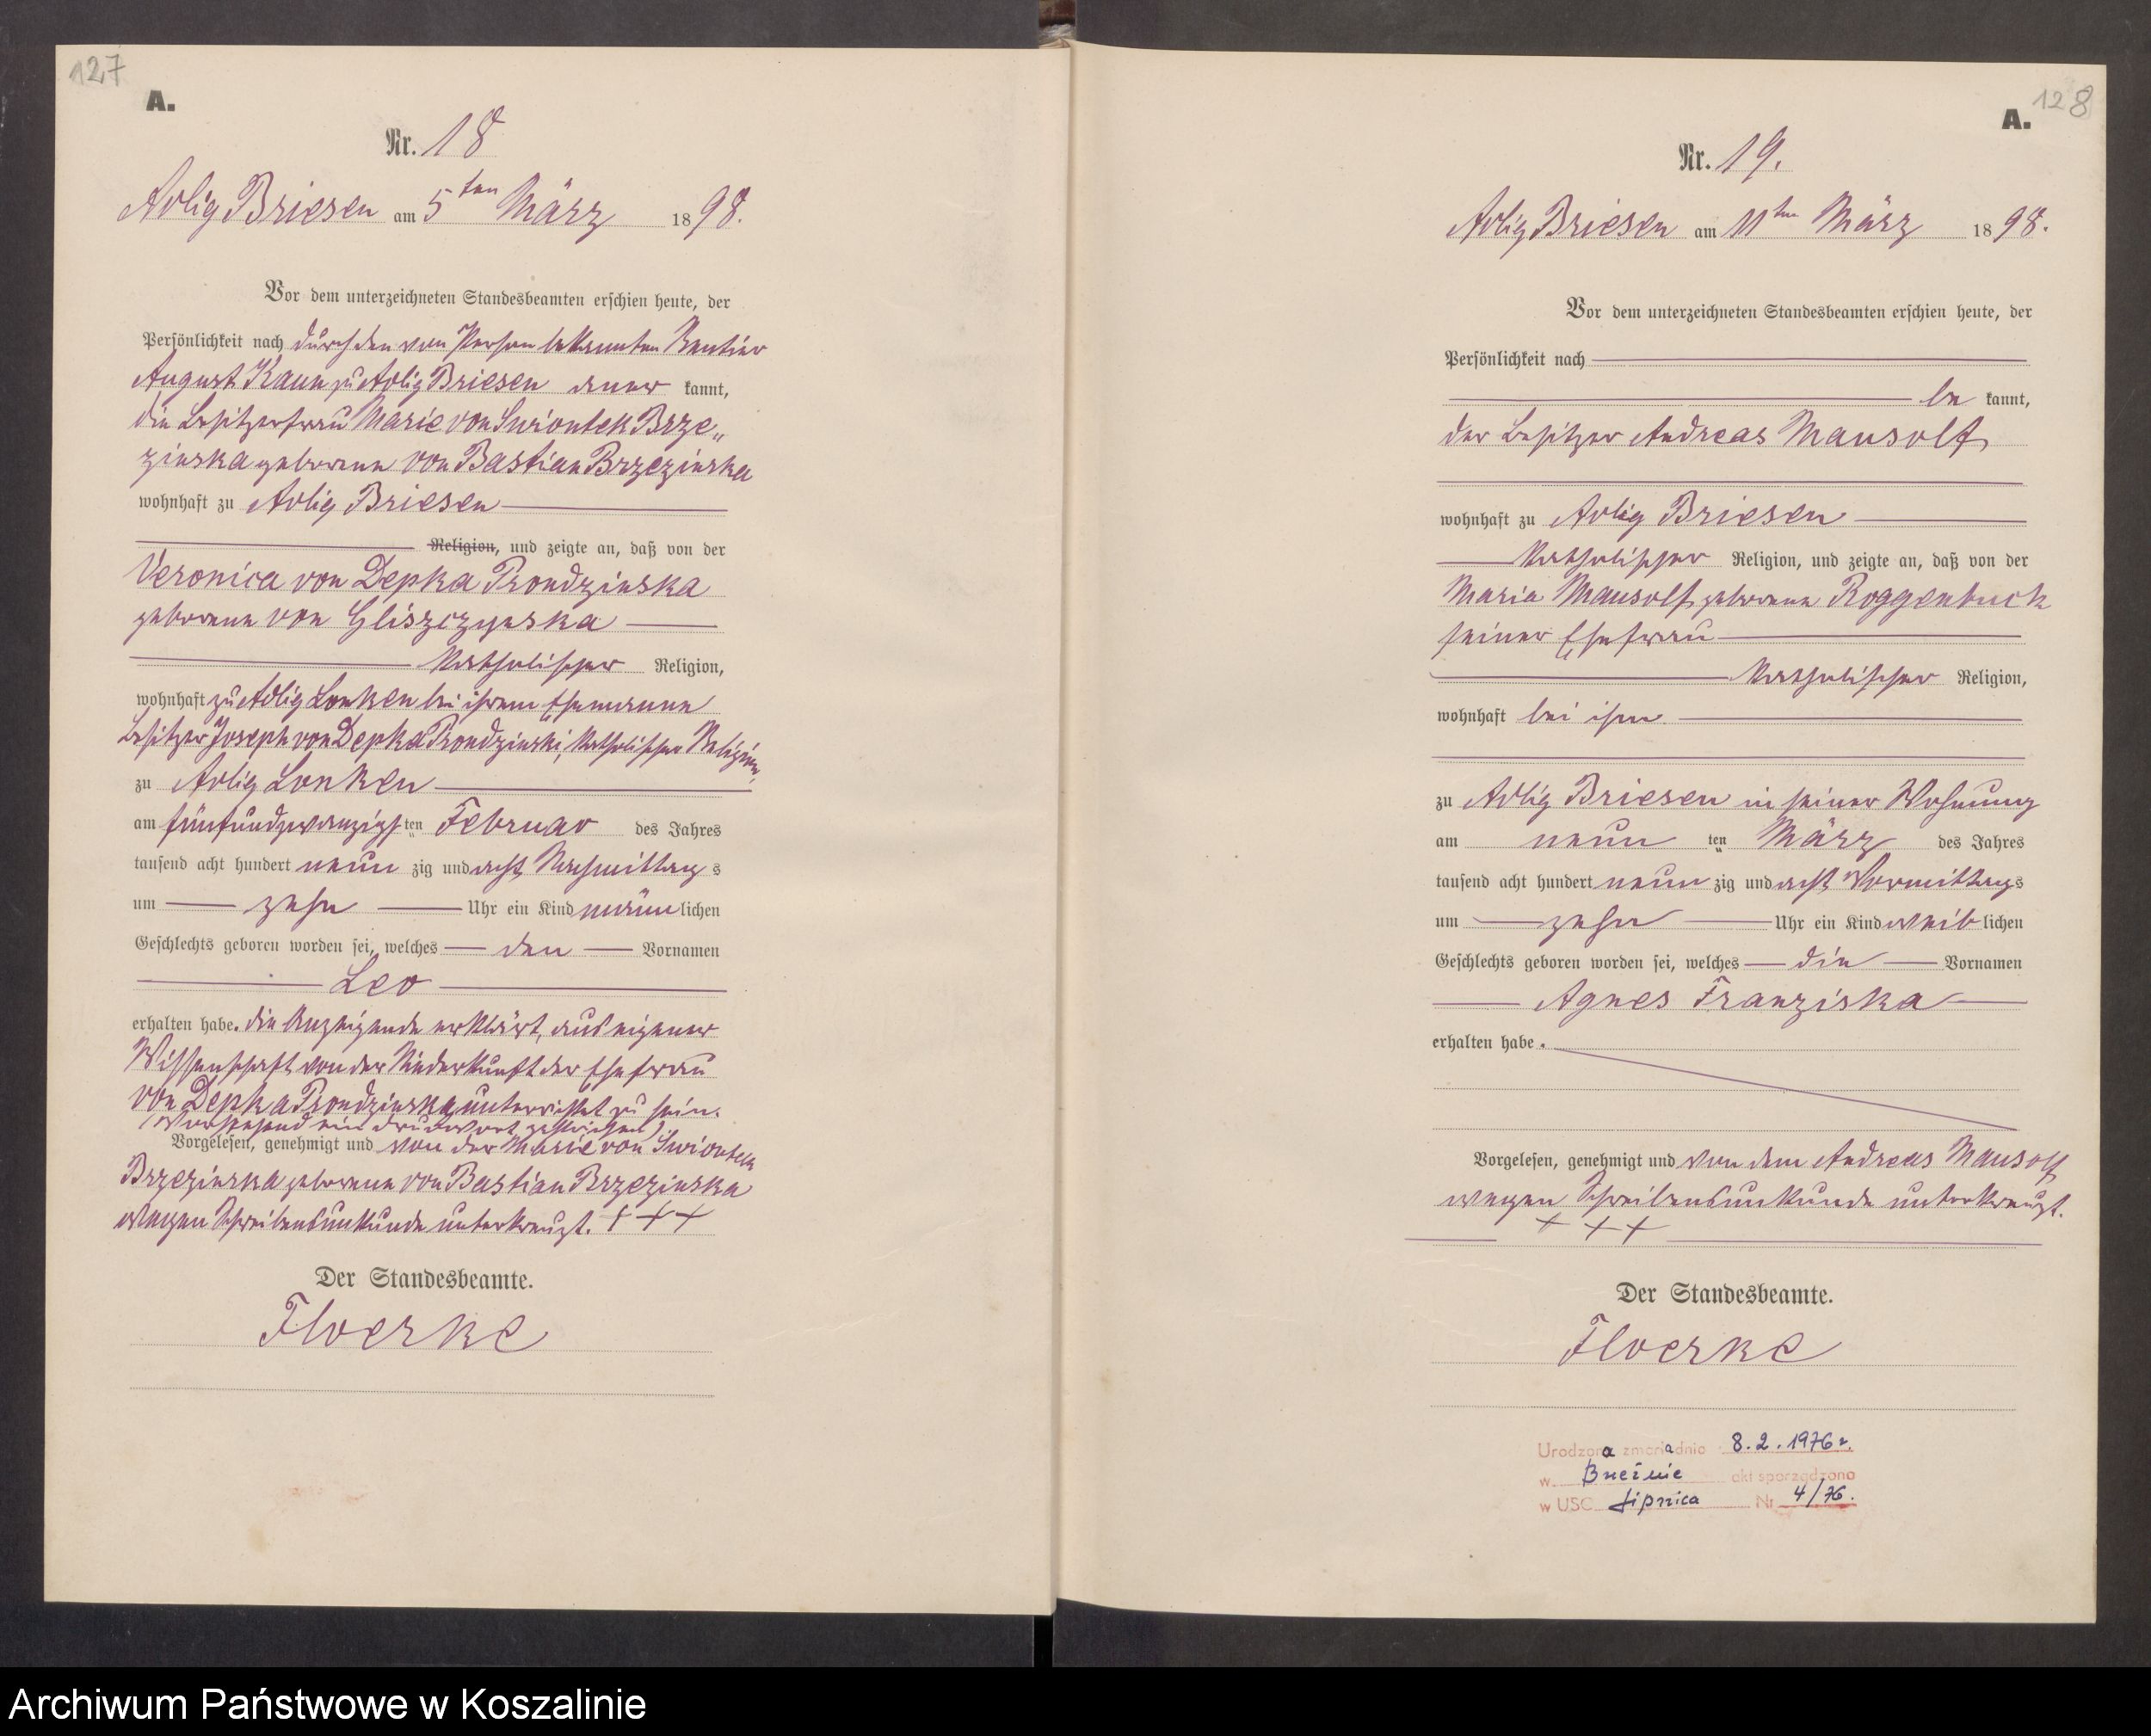 127
A.
Nr. 18
Adlig Briesen am 5ten März 1898.
Vor dem unterzeichneten Standesbeamten erschien heute, der
Persönlichkeit nach durch den von Person bekannten Rentier
August Kaun zu Adlig Briesen aner kannt,
die Besitzerfrau Marie von Swiontek Brze„
zinska geborene von Bastian Brzezinska
wohnhaft zu Adlig Briesen
Religion, und zeigte an, daß von der
Veronica von Depka Prondzinska
geborene von Gliszczynska
katholischer Religion,
wohnhaft zu Adlig Lonken bei ihrem Ehemanne
Besitzer Joseph von Depka Prondzinski, katholischer Religion,
zu Adlig Lonken
am fünfundzwanzigsten Februar des Jahres
tausend acht hundert neun zig und acht Nachmittags
um zehn Uhr ein Kind männlichen
Geschlechts geboren worden sei, welches den Vornamen
Leo
erhalten habe. die Anzeigende erklärt, aus eigener
Wissenschaft von der Niederkunft der Ehefrau
von Depka Prondzinska unterrichtet zu sein.
(Vorstehend ein Druckwort gestrichen)
Vorgelesen, genehmigt und von der Marie von Swiontek
Brzezinska geborene von Bastian Brzezinska
wegen Schreibensunkunde unterkreuzt. + + +
Der Standesbeamte.
Floerke
128
A.
Nr. 19.
Adlig Briesen am 11ten März 1898.
Vor dem unterzeichneten Standesbeamten erschien heute, der
Persönlichkeit nach
be kannt,
der Besitzer Andreas Mausolf
wohnhaft zu Adlig Briesen
katholischer Religion, und zeigte an, daß von der
Maria Mausolf geborene Roggenbuck
seiner Ehefrau
katholischer Religion,
wohnhaft bei ihm
zu Adlig Briesen in seiner Wohnung
am neun ten März des Jahres
tausend acht hundert neun zig und acht Vormittags
um zehn Uhr ein Kind weiblichen
Geschlechts geboren worden sei, welches die Vornamen
Agnes Franziska
erhalten habe.
Vorgelesen, genehmigt und von dem Andreas Mausolf
wegen Schreibensunkunde unterkreuzt.
+ + +
Der Standesbeamte.
Floerke
Urodzona zmarła dnia 8.2.1976 r.
w Brzeźnie akt sporządzono
w USC Lipnica Nr 4/76.
Archiwum Państwowe w Koszalinie